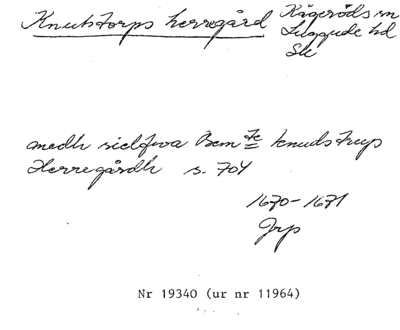 Knutstorps herregård Kågeröds sn
Luggude hd
Sk
medh sielfwa Bem te knudstrup
Herregårdh s. 704
1670-1671
Jrp
Nr 19340 (ur nr 11964)